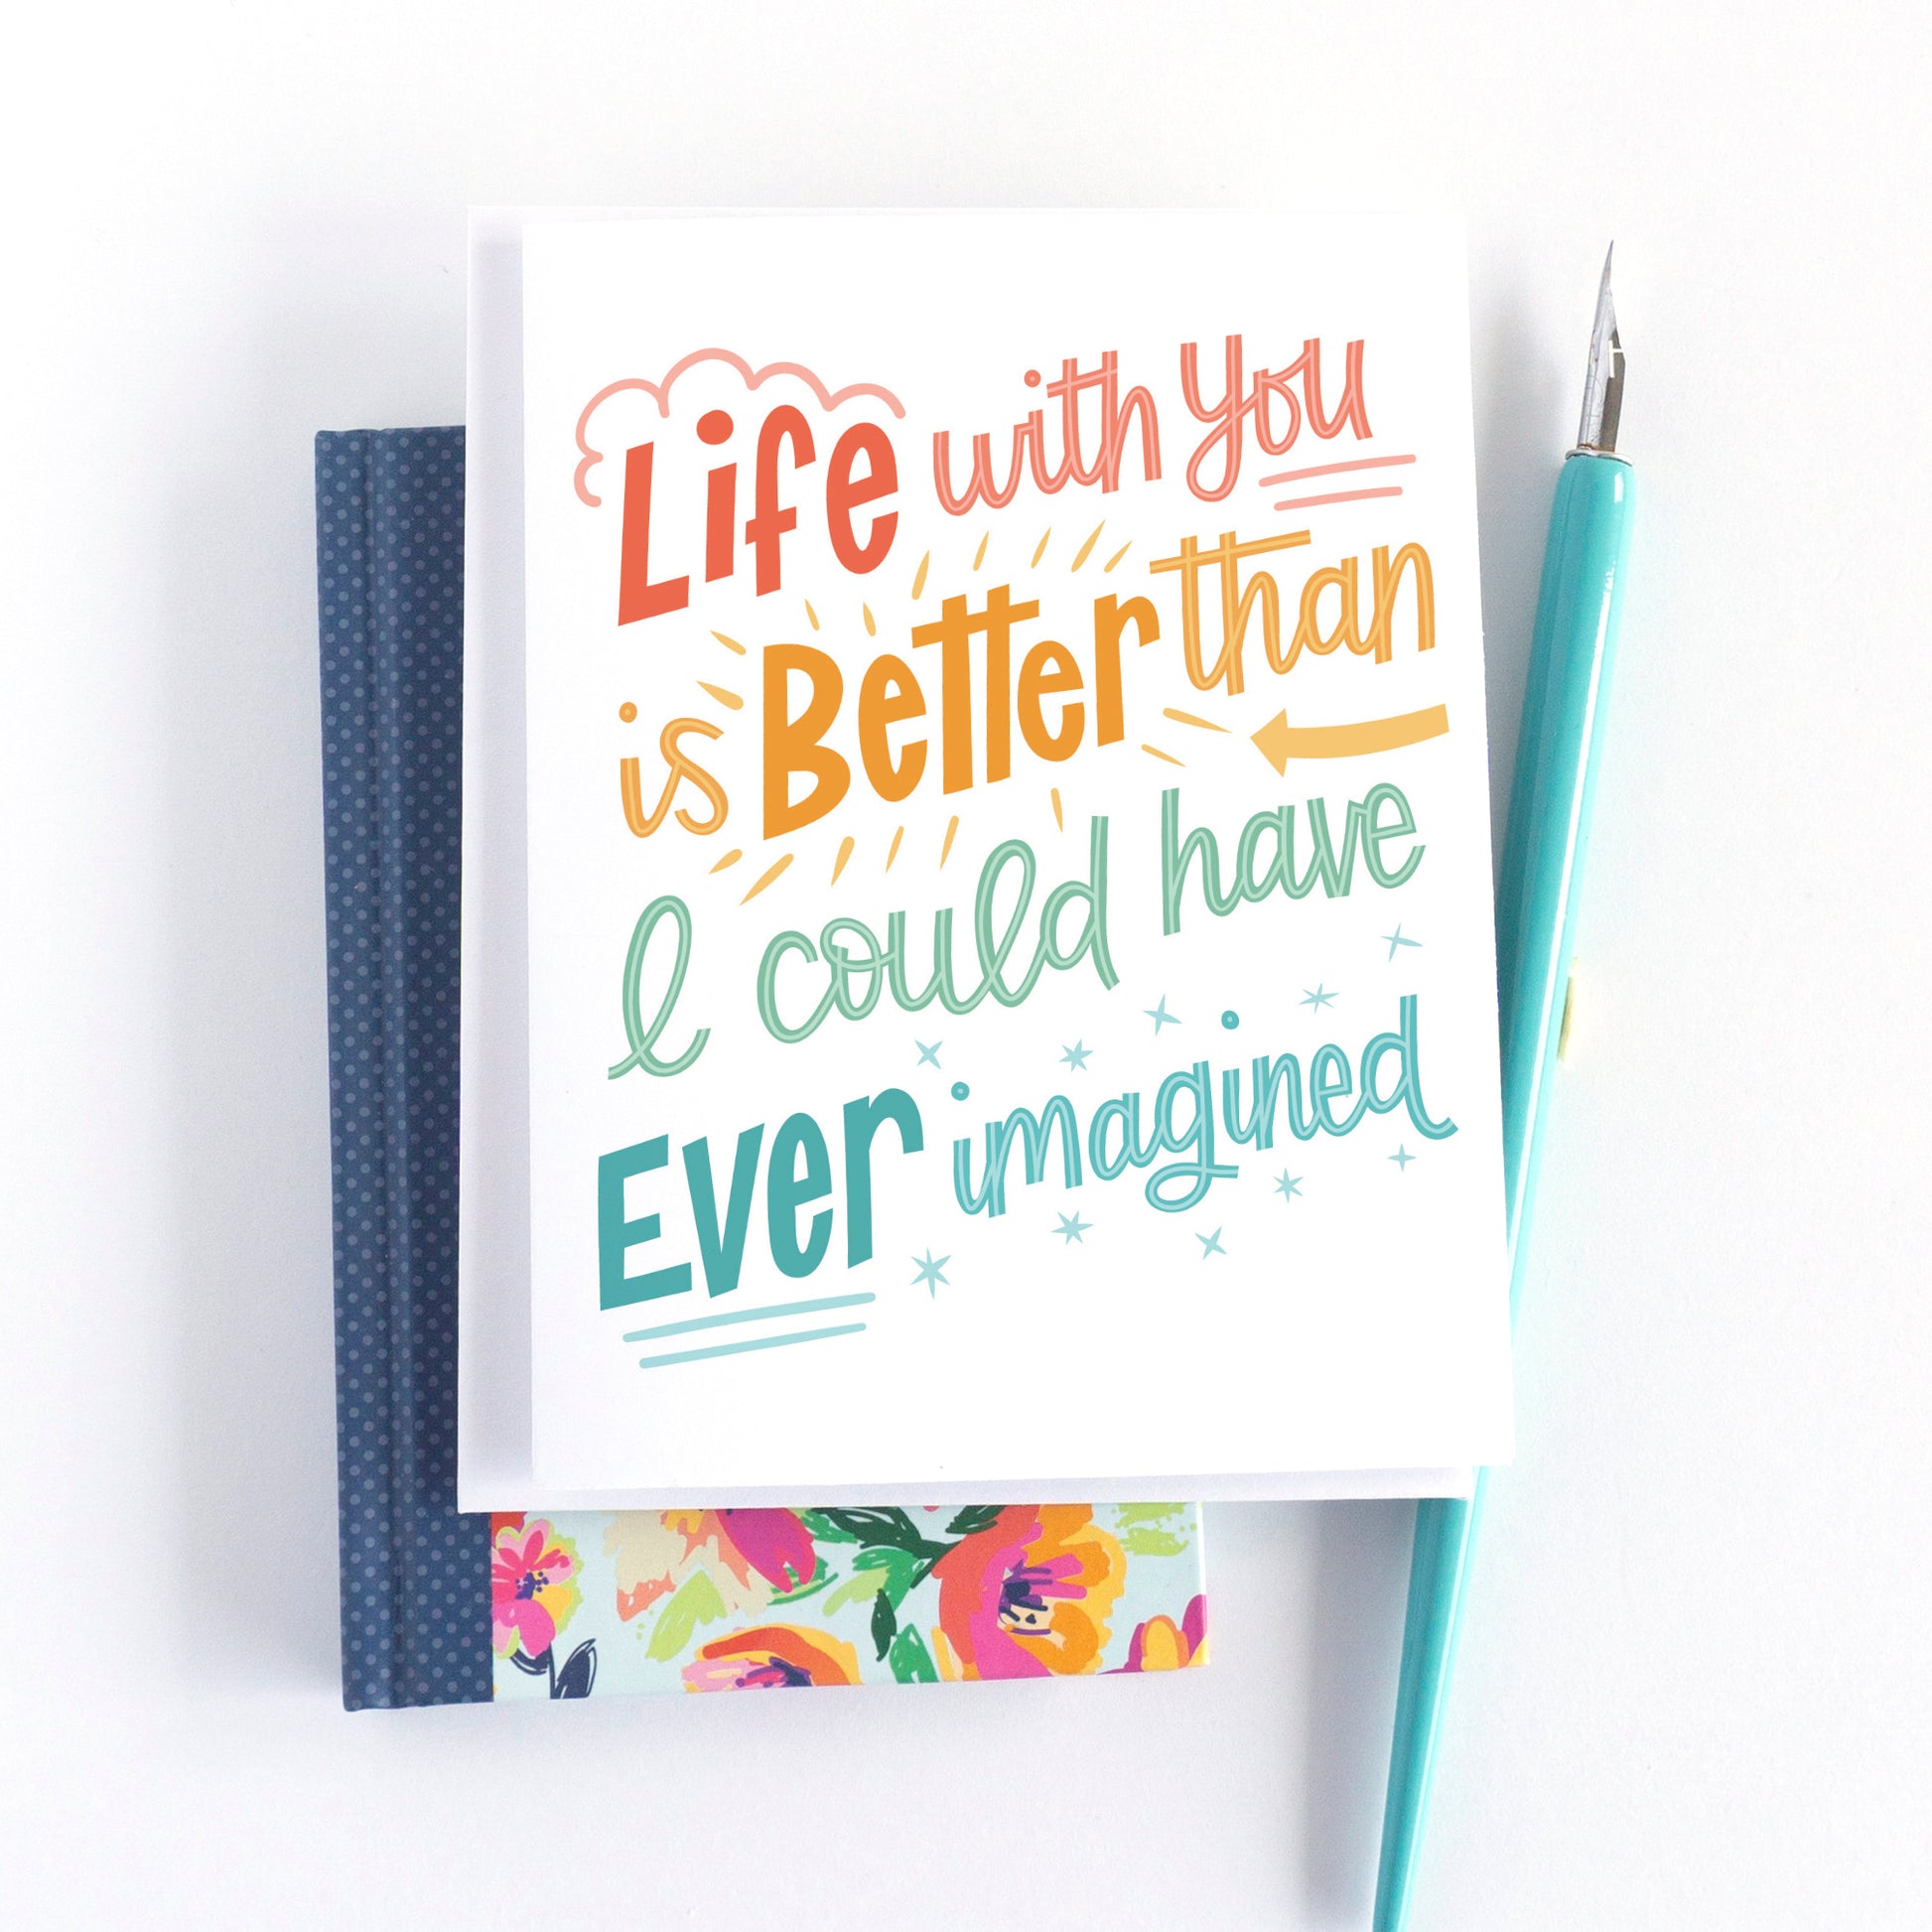 Life with You
is Better than
I could have
Ever imagined